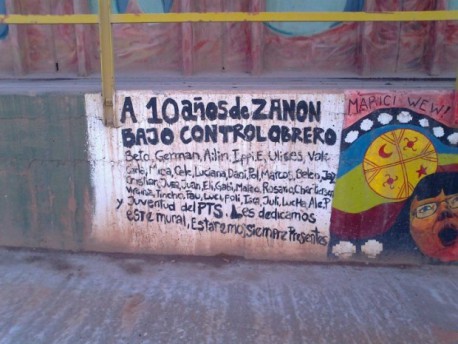 A 10 años de ZANON
BAJO CONTROL OBRERO
Beto, German, Ailin, Ippi.E, Ulises, Vale
Carla, Mica, Cele, Luciana, Dani, Pol, Marcos, Belen,
Cristian, Juan, Eli, Gabi, Maleo, Rosario,
Virginia, Tincho, Pau, Luci, Poli, Isa, Juli, Lucha, Ale.P
y Juventud del PTS. Les dedicamos
este mural, Estaremos, Siempre Presentes
MARICI WEW!